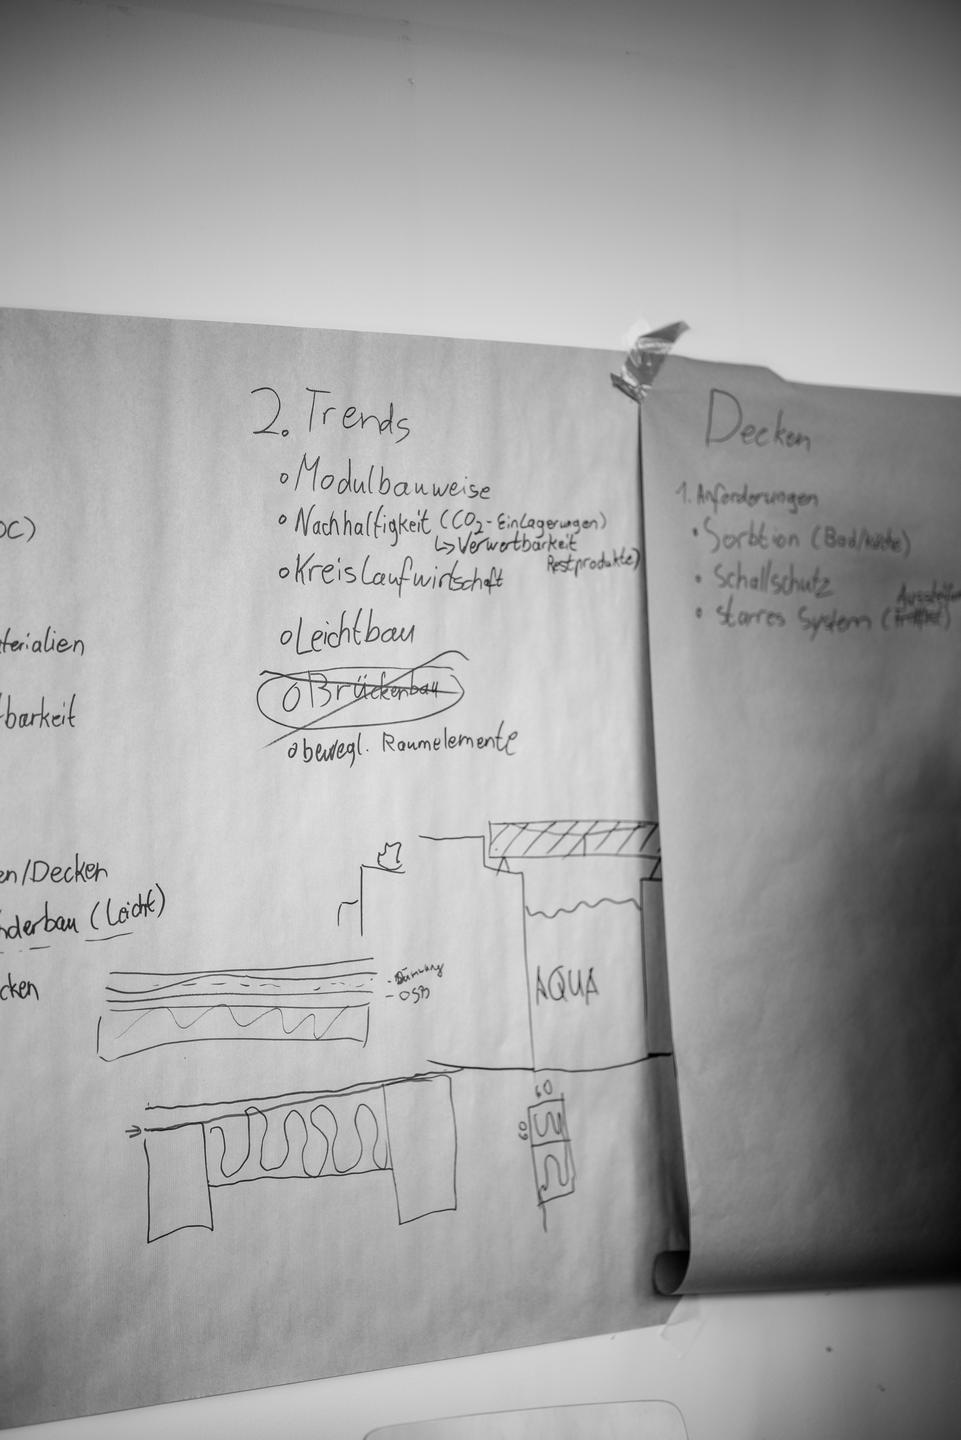 2. Trends
o Modulbauweise
o Nachhaltigkeit (CO2-Einlagerungen)
↳ Verwertbarkeit
Restprodukte)
o Kreislaufwirtschaft
o Leichtbau
o Brückenbau
o bewegl. Raumelemente
OC)
terialien
barkeit
en/Decken
nderbau (Leicht)
cken
- Dämmung
- OSB
AQUA
60
60
Decken
1. Anforderungen
• Sorbtion (Bad/küche)
• Schallschutz
• starres System (